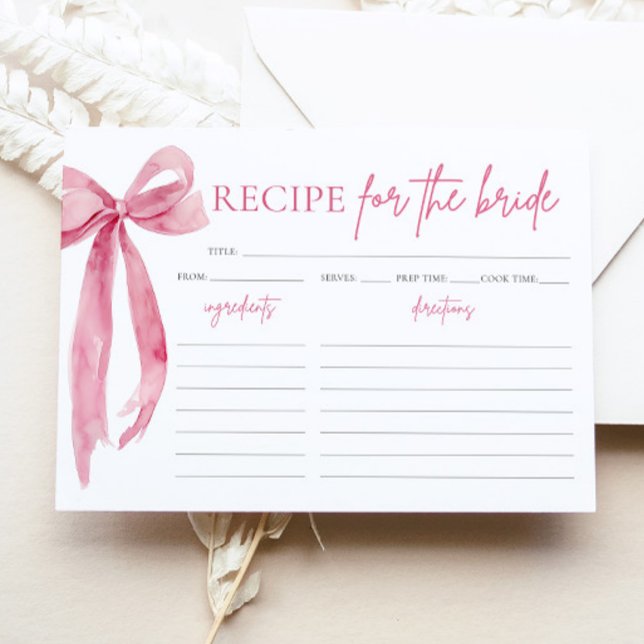 RECIPE for the bride
TITLE:
FROM: SERVES: PREP TIME: COOK TIME:
ingredients directions